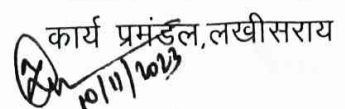 कार्य प्रमंडल,लखीसराय
10/11/2023